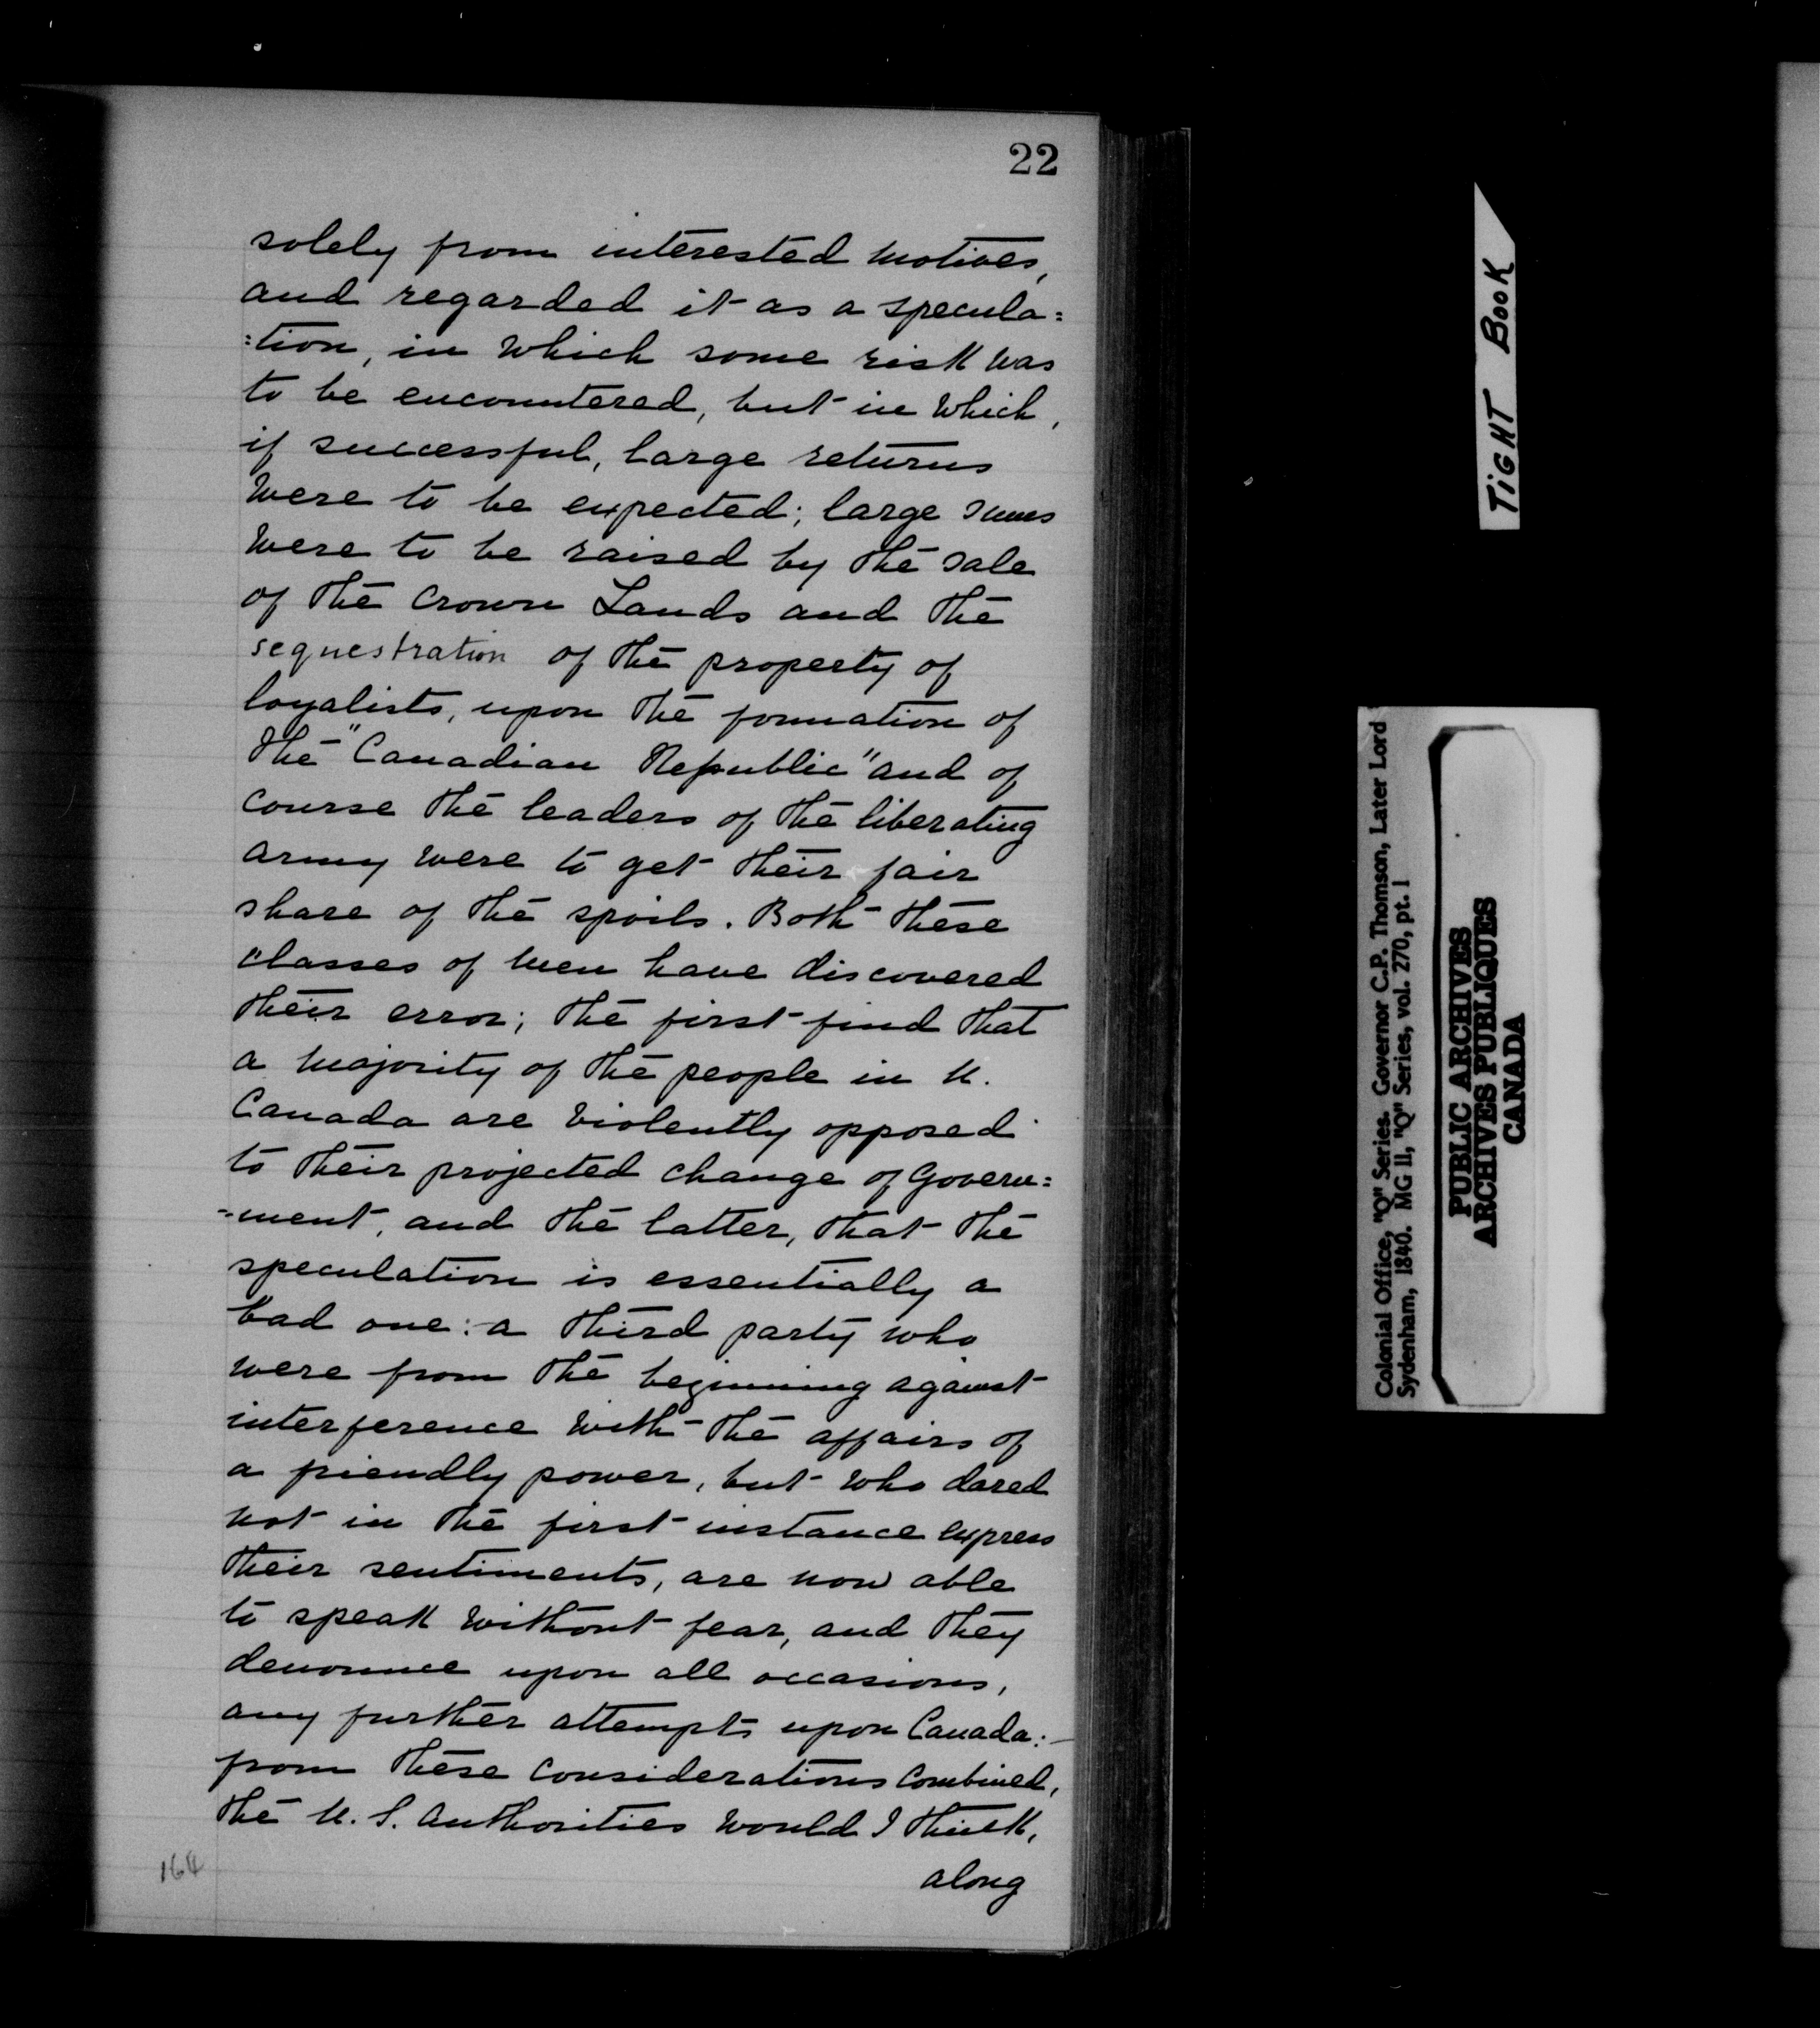 22
solely from interested motives,
and regarded it as a specula=
=tion, in which some risk was
to be encountered, but in which,
if successful, large returns
were to be expected; large sums
were to be raised by the sale
of the Crown Lands and the
sequestration of the property of
loyalists, upon the formation of
the "Canadian Republic" and of
course the leaders of the liberating
army were to get their fair
share of the spoils. Both these
classes of men have discovered
their error; the first find that
a majority of the people in U.
Canada are violently opposed
to their projected change of Govern=
=ment, and the latter, that the
speculation is essentially a
bad one:- a third party who
were from the beginning against
interference with the affairs of
a friendly power, but who dared
not in the first instance express
their sentiments, are now able
to speak without fear, and they
denounce upon all occasions,
any further attempts upon Canada:-
from these considerations combined,
the U.S. Authorities would I think,
along
164
TiGHT BOOK
Colonial Office, "Q" Series. Governor C.P. Thomson, Later Lord
Sydenham, 1840. MG 11, "Q" Series, vol. 270, pt. 1
PUBLIC ARCHIVES
ARCHIVES PUBLIQUES
CANADA